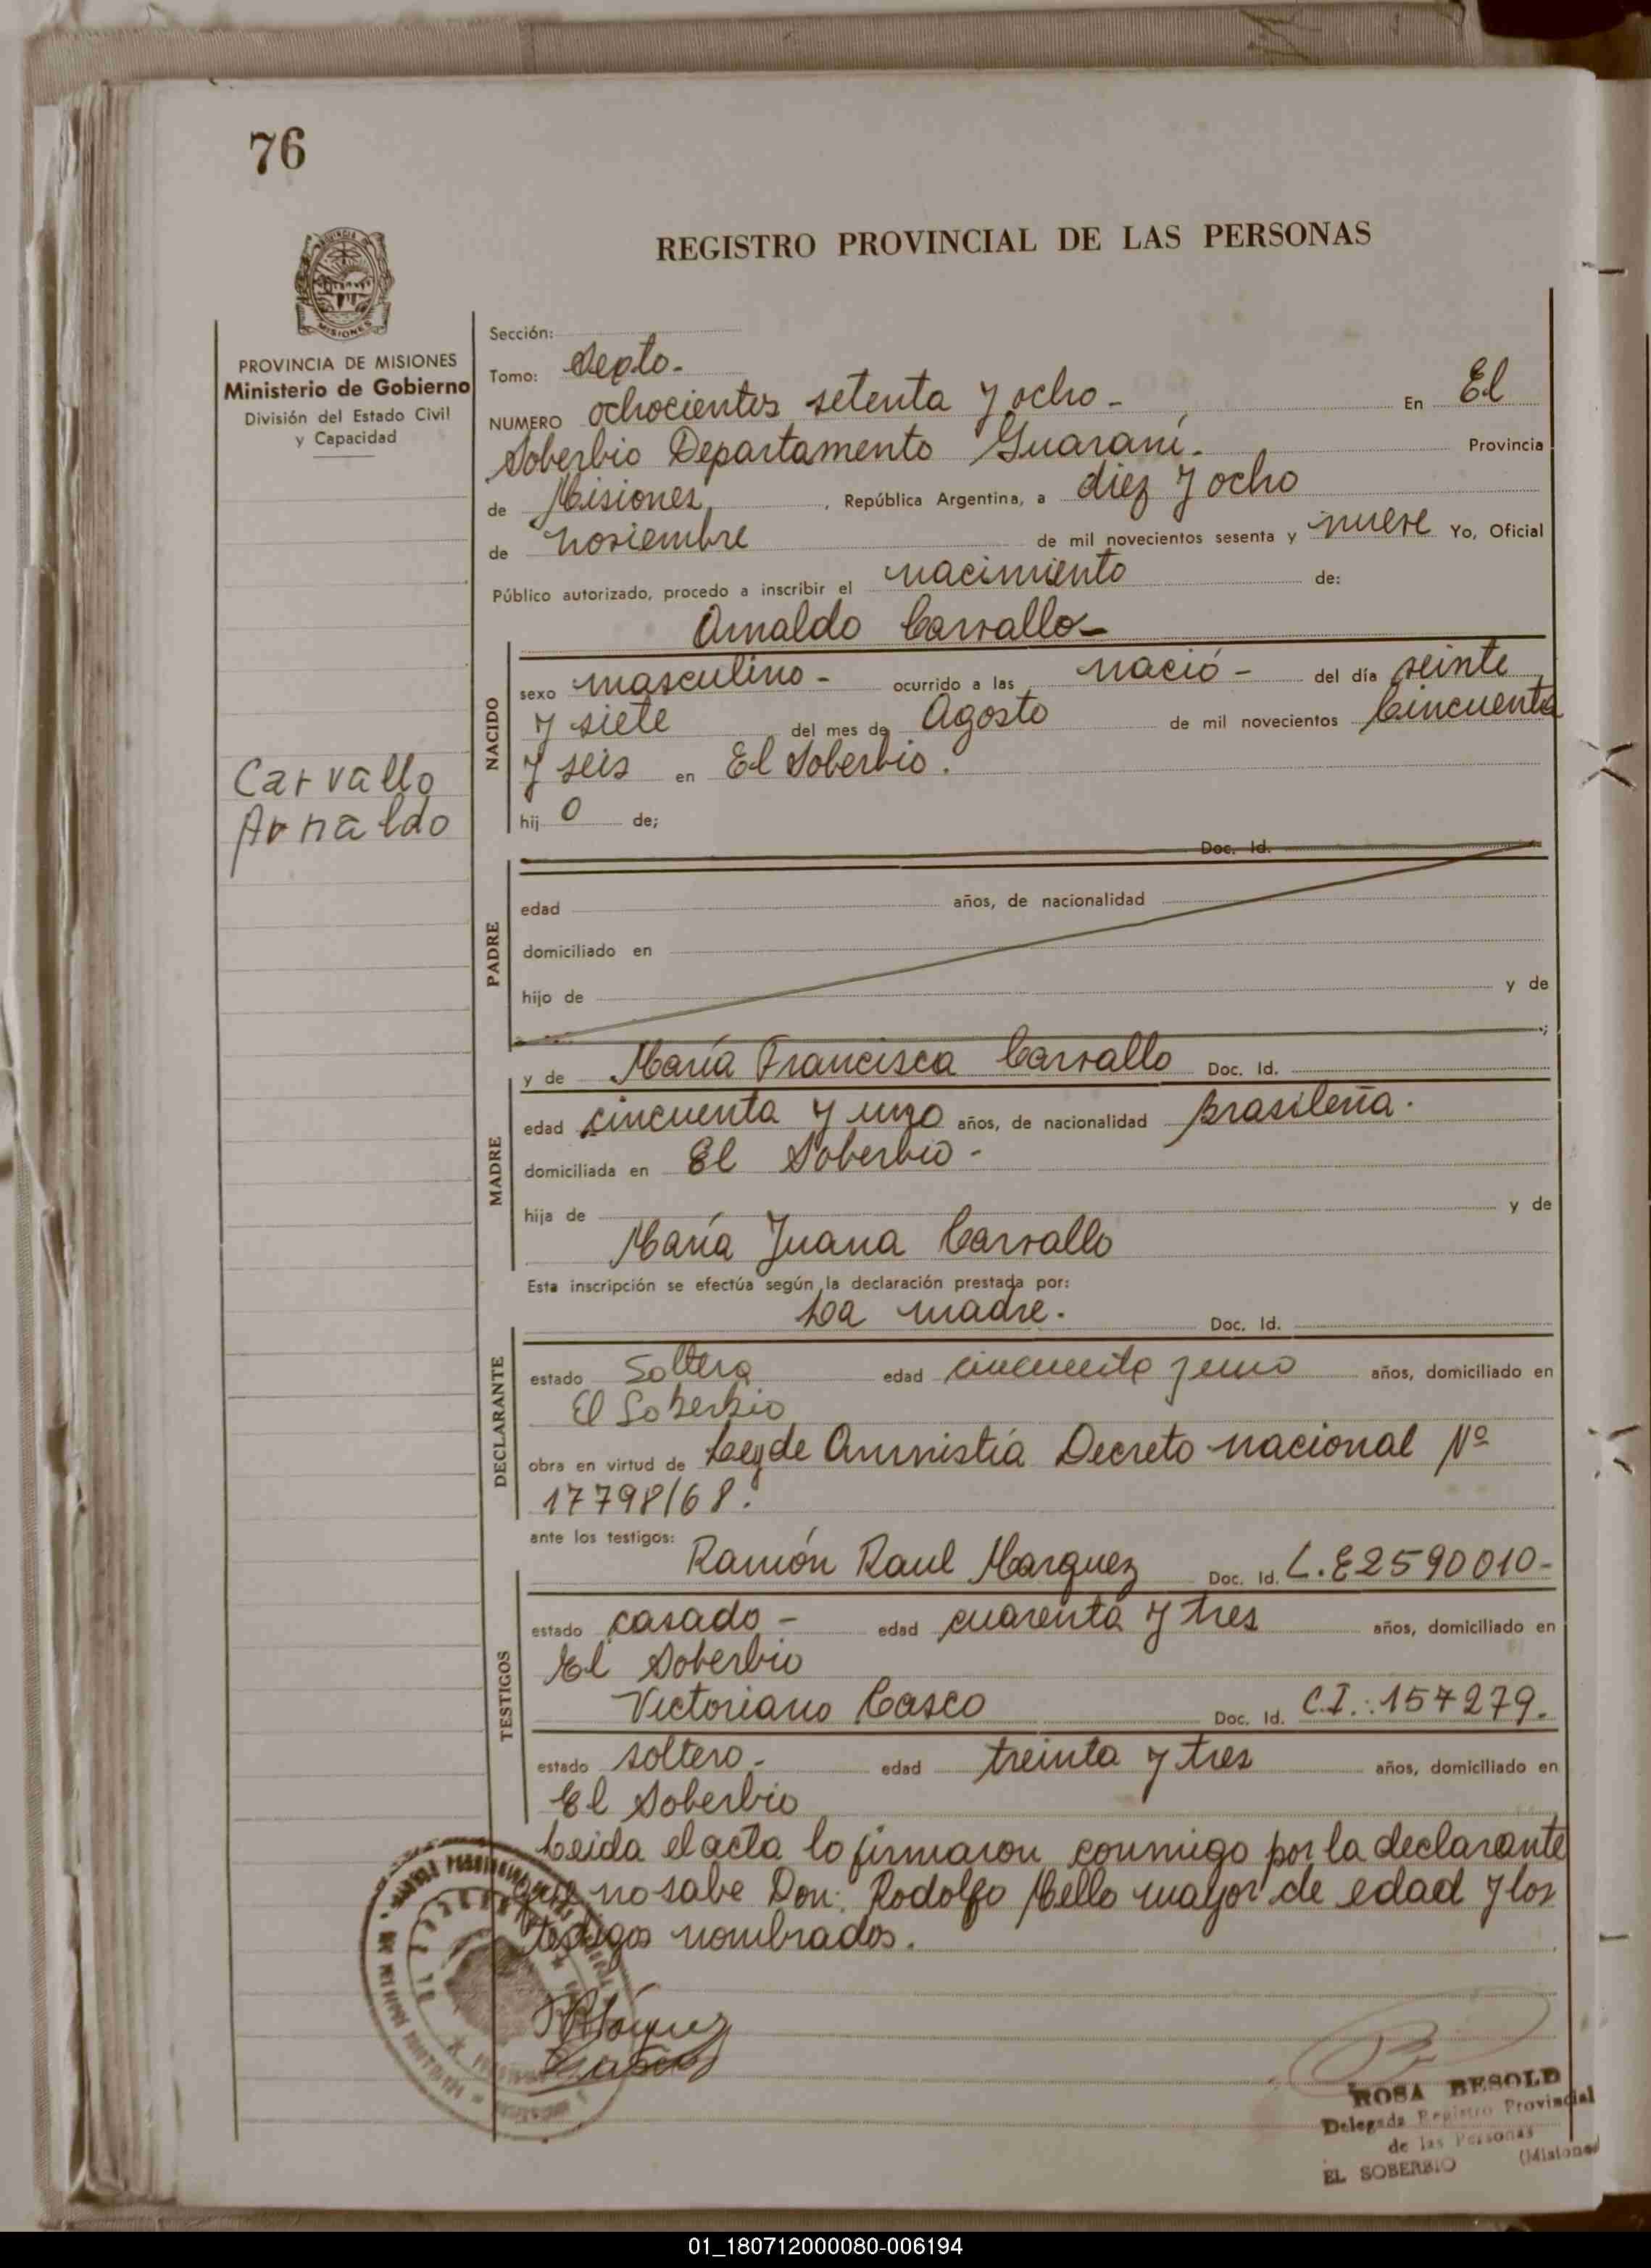 76
REGISTRO PROVINCIAL DE LAS PERSONAS
PROVINCIA DE MISIONES
Ministerio de Gobierno
División del Estado Civil
y Capacidad
Carvallo
Arnaldo
Sección:
Tomo: Sexto.
NUMERO ochocientos setenta y ocho - En El
Soberbio Departamento Guaraní. Provincia
de Misiones, , República Argentina, a diez y ocho
de noviembre de mil novecientos sesenta y nueve Yo, Oficial
Público autorizado, procedo a inscribir el nacimiento de:
Arnaldo Carvallo-
NACIDO
sexo masculino - ocurrido a las nació - del día veinte
y siete del mes de Agosto de mil novecientos Cincuenta
y seis en El Soberbio.
hij o de;
Doc. Id.
PADRE
edad años, de nacionalidad
domiciliado en
hijo de y de
;
y de María Francisca Carvallo Doc. Id.
MADRE
edad cincuenta y uno años, de nacionalidad Brasileña.
domiciliada en El Soberbio -
hija de y de
María Juana Carvallo
Esta inscripción se efectúa según la declaración prestada por:
La madre. Doc. Id.
DECLARANTE
estado Soltera edad cincuenta y uno años, domiciliado en
El Soberbio
obra en virtud de Ley de Amnistía Decreto nacional Nº
17798/68.
ante los testigos:
Ramón Raul Marquez Doc. Id. L.E 2590010-
TESTIGOS
estado casado - edad cuarenta y tres años, domiciliado en
El Soberbio
Victoriano Casco Doc. Id. C.I.: 157279.
estado soltero - edad treinta y tres años, domiciliado en
El Soberbio
Leida el acta lo firmaron conmigo por la declarante
que no sabe Don: Rodolfo Mello mayor de edad y los
testigos nombrados.
ROSA BESOLD
Delegada Registro Provincial
de las Personas
EL SOBERBIO (Misiones)
01_180712000080-006194